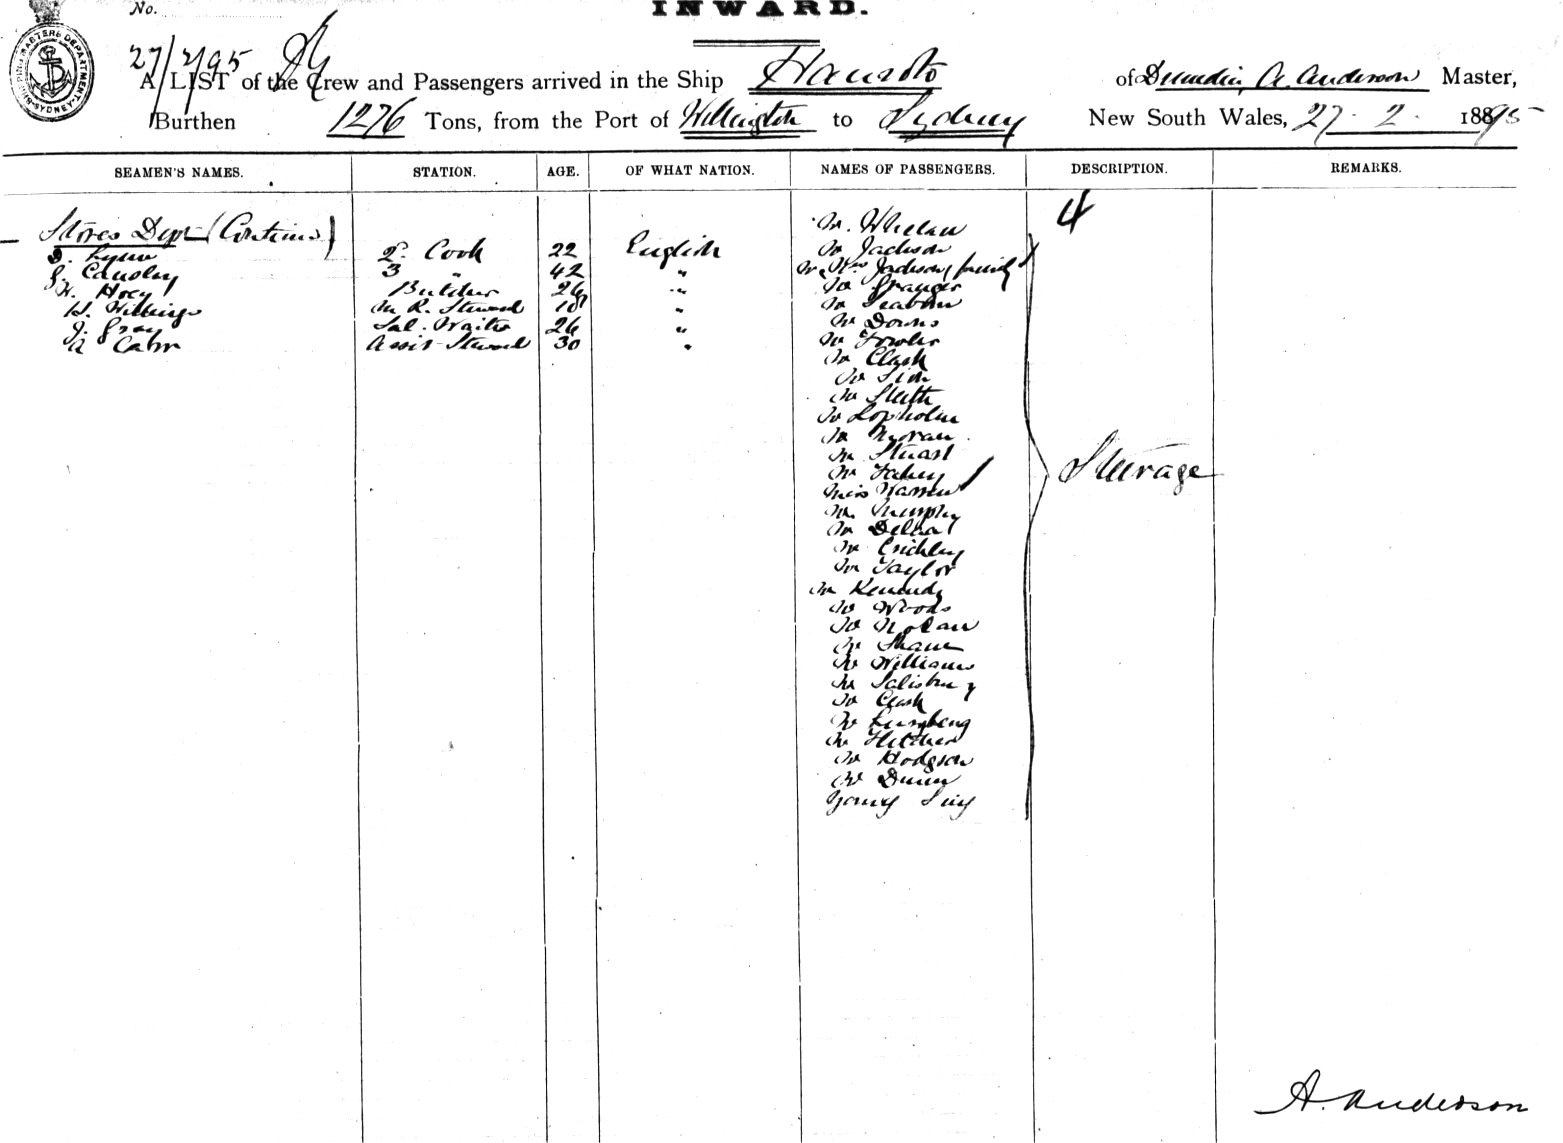 No.
INWARD.
27/2/95
A LIST of the Crew and Passengers arrived in the Ship Hauroto of Dunedin, A. Anderson Master,
Burthen 1276 Tons, from the Port of Wellington to Sydney New South Wales, 27. 2. 1895
SEAMEN'S NAMES. STATION. AGE. OF WHAT NATION. NAMES OF PASSENGERS. DESCRIPTION. REMARKS.
Stores Dept (Continued) Mr. Whelan 4
D. Lynn 2d Cook 22 English Mr Jackson
Causley 3 " 42 " Mr Mrs Jackson & family
Hoey Butcher 26 " Mr Granger
H. Steward 18 " Mr
J. Gray Sal. Waiter 26 " Mr Downs
A Cahn Assis Steward 30 " Mr Fowler
Mr Clark
Mr Sim
Mr
Mr
Mr Moran
Mr Stuart
Mr Fahey
Steerage
Miss Warren
Mr Murphy
Mr
Mr Crichley
Mr Taylor
Mr Kennedy
Mr Woods
Mr Nolan
Mr Shaw
Mr Williams
Mr Salisbury
Mr Clark
Mr
Mr Fletcher
Mr Hodgson
Mr Dunn
A. Anderson